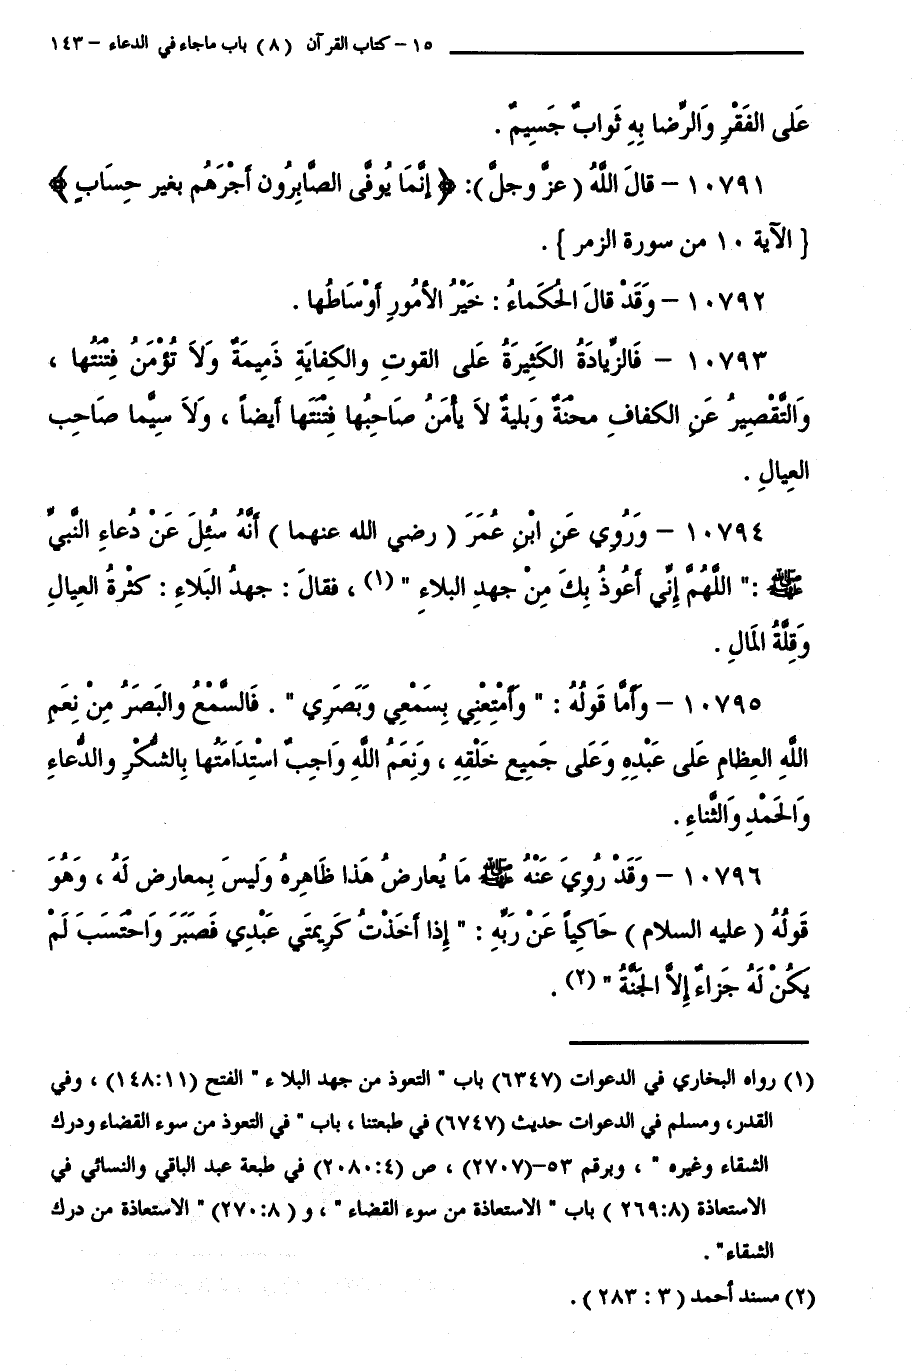 ١٥ – كتاب القرآن (٨) باب ماجاء في الدعاء – ١٤٣
عَلى الفَقْرِ وَالرِّضا بِهِ ثَوابٌ جَسِيمٌ .
١٠٧٩١ – قالَ اللَّهُ ( عزَّ وجلَّ ): ﴿ إنَّمَا يُوفَّى الصَّابِرُون أجْرَهُم بغير حِسَابٍ ﴾
{ الآية ١٠ من سورة الزمر } .
١٠٧٩٢ – وَقَدْ قالَ الحُكَماءُ : خَيْرُ الأمُورِ أوْسَاطُها .
١٠٧٩٣ – فَالزِّيادَةُ الكَثِيرَةُ عَلى القوتِ والكِفايَةِ ذَمِيمَةٌ وَلاَ تُؤْمَنُ فِتْنَتُها ،
وَالتَّقْصِيرُ عَنِ الكفافِ محْنَةٌ وَبليةٌ لاَ يأمَنُ صَاحِبُها فِتْنَتَها أيضاً ، وَلاَ سِيَّما صَاحِب
العِيالِ .
١٠٧٩٤ – وَرُوِي عَنِ ابْنِ عُمَرَ ( رضي الله عنهما ) أنَّهُ سُئِلَ عَنْ دُعاءِ النَّبيِّ
ﷺ :" اللَّهُمَّ إنِّي أعُوذُ بِكَ مِنْ جهدِ البلاءِ " (١) ، فقالَ : جهدُ البَلاءِ : كثْرةُ العِيالِ
وَقِلَّةُ المَالِ .
١٠٧٩٥ – وأمَّا قَولُهُ : " وأَمْتِعْنِي بِسَمْعِي وبَصَرِي " . فَالسَّمْعُ والبَصَرُ مِنْ نِعَمِ
اللَّهِ العِظامِ عَلى عَبْدِهِ وَعَلى جَمِيعِ خَلْقِهِ ، وَنِعَمُ اللَّهِ وَاجِبٌ اسْتِدَامَتُها بِالشُّكْرِ والدُّعاءِ
وَالحَمْدِ وَالثَّناءِ .
١٠٧٩٦ – وَقَدْ رُوِيَ عَنْهُ ﷺ مَا يُعارضُ هَذا ظَاهِرهُ وَليسَ بِمعارض لَهُ ، وَهُوَ
قَولُهُ ( عليه السلام ) حَاكِياً عَنْ رَبِّهِ : " إِذا أخَذْتُ كَرِيمتَي عَبْدِي فَصَبَرَ وَاحْتَسَبَ لَمْ
يكُنْ لَهُ جَزاءٌ إلاَّ الجَنَّةُ " (٢) .
(١) رواه البخاري في الدعوات (٦٣٤٧) باب " التعوذ من جهد البلا ء " الفتح (١٤٨:١١) ، وفي
القدر، ومسلم في الدعوات حديث (٦٧٤٧) في طبعتنا ، باب " في التعوذ من سوء القضاء ودرك
الشقاء وغيره " ، وبرقم ٥٣–(٢٧٠٧) ، ص (٢٠٨٠:٤) في طبعة عبد الباقي والنسائي في
الاستعاذة (٢٦٩:٨ ) باب " الاستعاذة من سوء القضاء " ، و ( ٢٧٠:٨) " الاستعاذة من درك
الشقاء" .
(٢) مسند أحمد ( ٣ : ٢٨٣ ) .